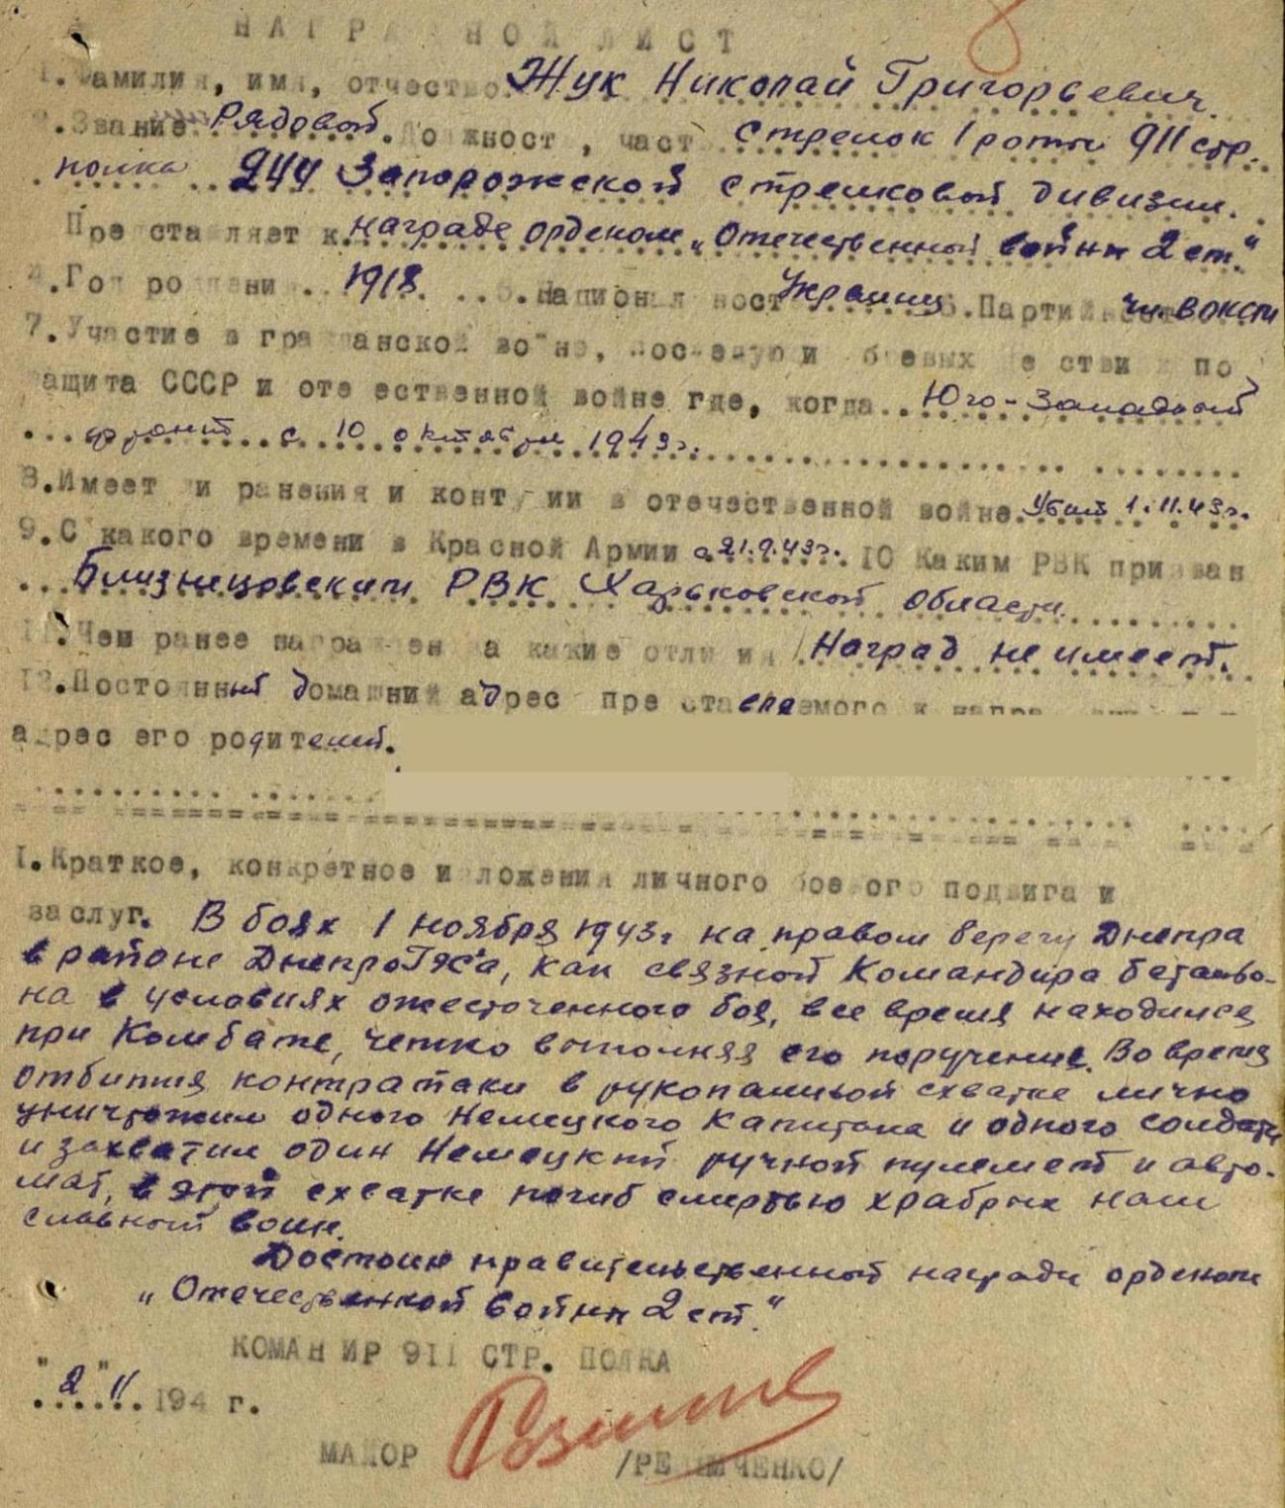 8
НАГРАДНОЙ ЛИСТ
1.Фамилия, имя, отчество. Жук Николай Григорьевич.
2.Звание. Рядовой. Должность, часть стрелок 1 роты 911 стр.
полка 244 Запорожской стрелковой дивизии.
Представляется к. награде орденом „Отечественной войны 2 ст."
4.Год рождения.. 1918. ..5.Национальность Украинец 6.Партийность чл. ВКП(б)
7.Участие в гражданской войне, последующих боевых действиях по
защита СССР и отечественной войне где, когда.. Юго-Западный
...фронт с 10 октября 1943г.
8.Имеет ли ранения и контузии в отечественной войне. Убит 1.11.43г.
9.С какого времени в Красной Армии с 21.9.43г. 10 Каким РВК призван
...Близнецовским РВК Харьковской области
11.Чем ранее награжден за какие отличия Наград не имеет.
12.Постоянный домашний адрес представляемого к
адрес его родителей.
I.Краткое, конкретное изложения личного боевого подвига и
заслуг. В боях 1 ноября 1943г на правом берегу Днепра
в районе ДнепроГЭС'а, как связной Командира батальо-
на в условиях ожесточенного боя, все время находился
при Комбате, четко выполняя его поручение. Во время
отбития контратаки в рукопашной схватке лично
уничтожил одного Немецкого Капитана и одного солдата
и захватил один Немецкий ручной пулемет и авто-
мат, в этой схватке погиб смертью храбрых наш
славный воин.
Достоин правительственной награды орденом
„Отечественной войны 2 ст."
КОМАНДИР 911 СТР. ПОЛКА
"2" 11 194 г.
МАЙОР /РЕДНИЧЕНКО/